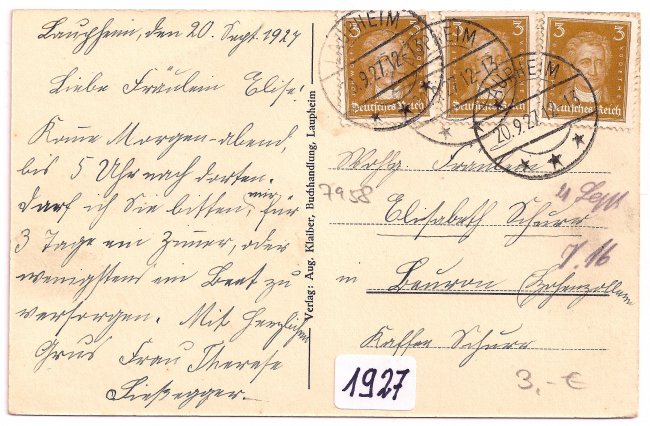 Laupheim, den 20. Sept. 1927
Liebe Fräulein Elise!
Komme Morgen abend,
bis 5 Uhr nach dorten.
darf ich Sie bitten, mir für
3 Tage ein Zimer, oder
wenigstens ein Bett zu
versorgen. Mit Herzlichen
Grus Frau Therese
Ließegger.
Verlag: Aug. Klaiber, Buchhandlung, Laupheim
3 3
Deutsches Reich
3
Deutsches Reich
3 3
Deutsches Reich
LAUPHEIM
20.9.27.12-1
7958
Fräulein
Elisabeth Schurr
in Beuron Hohenzollern
Kaffee Schurr
21 Sept
J. 16
1927
3,- €